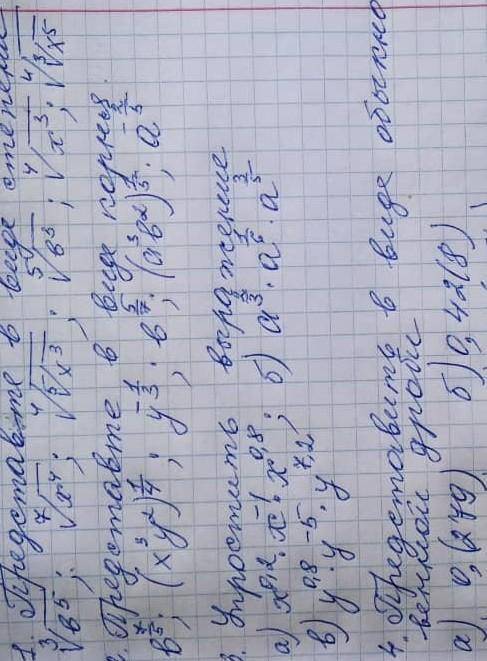 1. Представьте в виде степени
∛b⁵; ⁷√x⁴; ⁴√(⁵√x³); ⁵√b³; ⁴√x³; ⁴√(∛x⁵)
2. Представте в виде корня.
(x³y²)^(1/4); y^(-1/3); b^(5/7); (ab²)^(); a^()
3. Упростить выражение
а) x^(0,2) · x^(-1) · x^(0,8); б) a · a · a^(3/5)
в) y^(0,8) · y^(-5) · y^(7,2)
4. Представить в виде обыкно
венной дроби
а) 0,(279) б) 0,42(8)